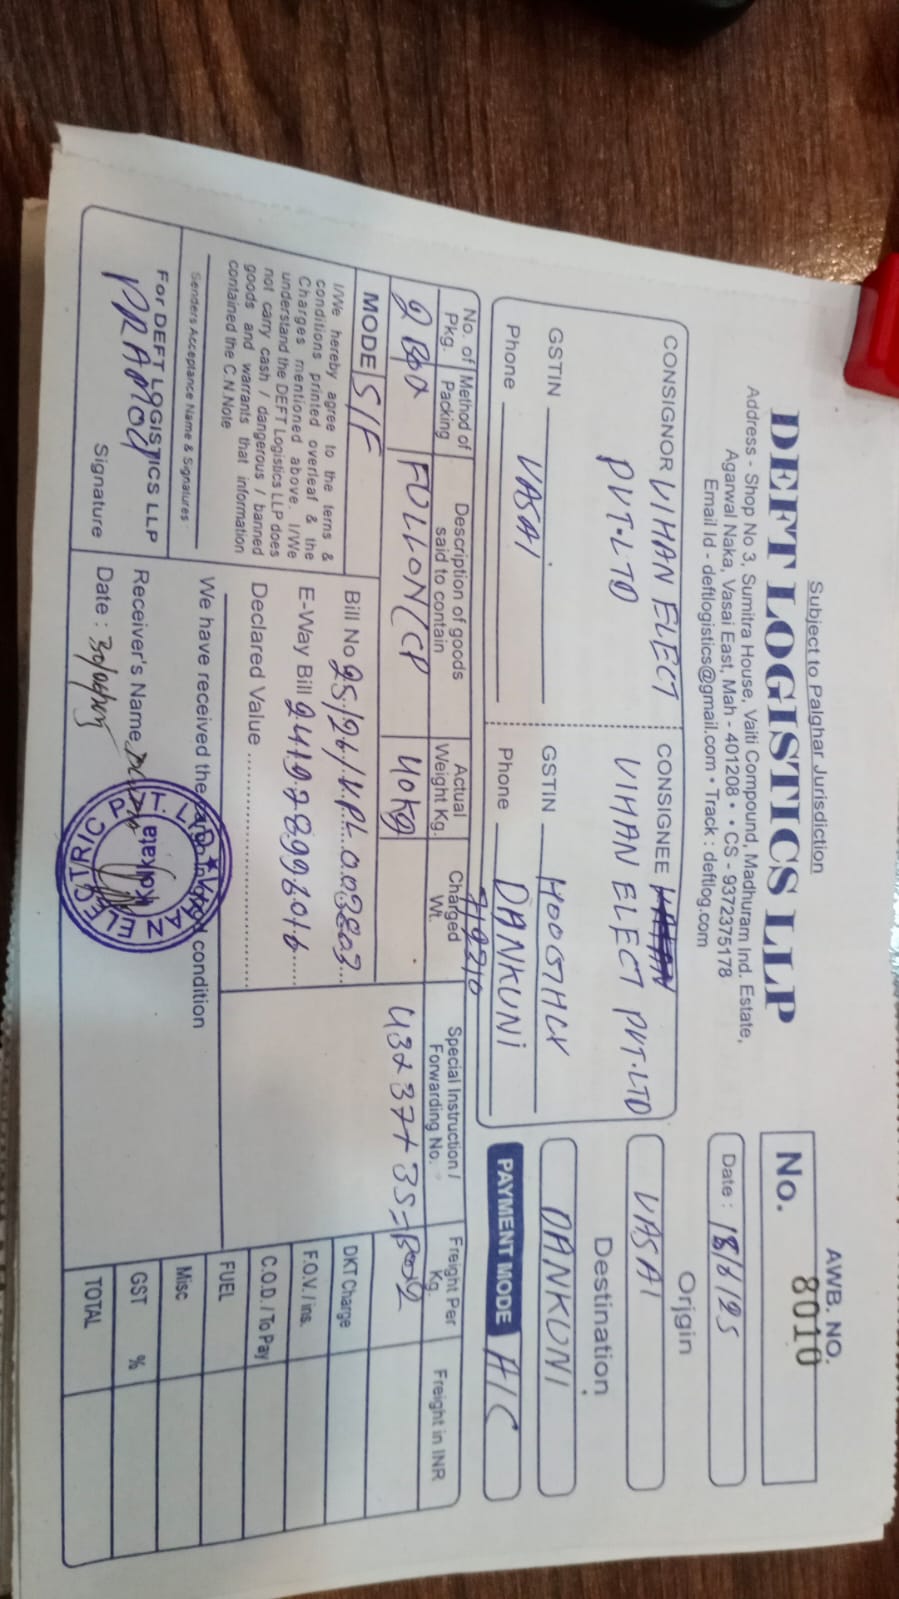 Subject to Palghar Jurisdiction
DEFT LOGISTICS LLP
Address - Shop No 3, Sumitra House, Vaiti Compound, Madhuram Ind. Estate,
Agarwal Naka, Vasai East, Mah - 401208 • CS - 9372375178
Email Id - deftlogistics@gmail.com • Track : deftlog.com
AWB. NO.
No. 8010
Date : 18/6/25
CONSIGNOR VIHAN ELECT
PVT.LTD
GSTIN
VASAI
Phone
CONSIGNEE
VIHAN ELECT PVT.LTD
GSTIN HOOGHLY
Phone DANKUNI
Orjgin
VASAI
Destination
DANKUNI
PAYMENT MODE A/C
No. of Pkg.
Method of Packing
Description of goods said to contain
Actual Weight Kg.
Charged Wt.
Special Instruction / Forwarding No.
Freight Per Kg.
Freight in INR
2 Box FOLLON CP 40kg 43237+35=
MODE S/F
Bill No 25/26/VPL
E-Way Bill
Declared Value
I/We hereby agree to the terns &
conditions printed overleaf & the
Charges mentioned above. I/We
understand the DEFT Logistics LLP does
not carry cash / dangerous / banned
goods and warrants that information
contained the C.N.Note
Senders Acceptance Name & Signatures :
For DEFT LOGISTICS LLP
PRAMOd
Signature
We have received the condition
Receiver's Name
Date :
Kolkata
DKT Charge
F.O.V. / ins.
C.O.D. / To Pay
FUEL
Misc
GST %
TOTAL